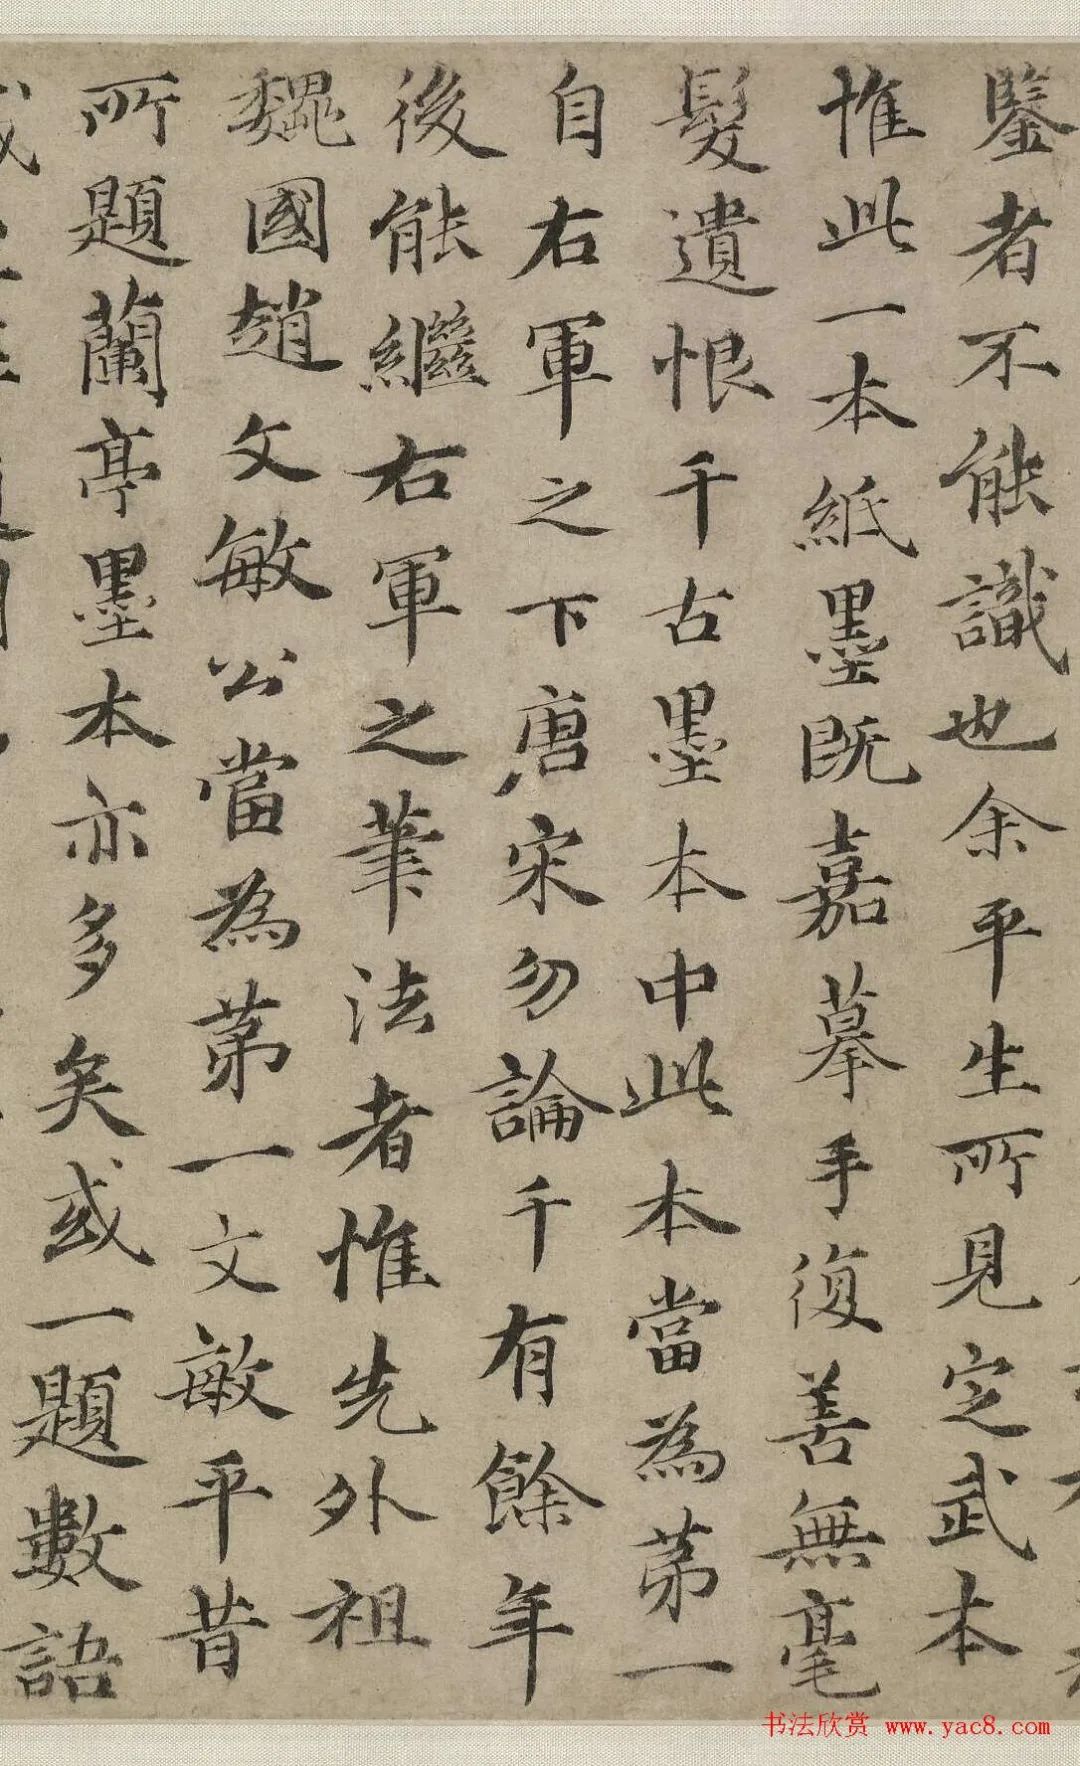 鑒者不能識也余平生所見定武本
惟此一本紙墨既嘉摹手復善無毫
髮遺恨千古墨本中此本當為苐一
自右軍之下唐宋勿論千有餘年
後能繼右軍之筆法者惟先外祖
魏國趙文敏公當為苐一文敏平昔
所題蘭亭墨本亦多矣或一題數語
书法欣赏 www.yac8.com